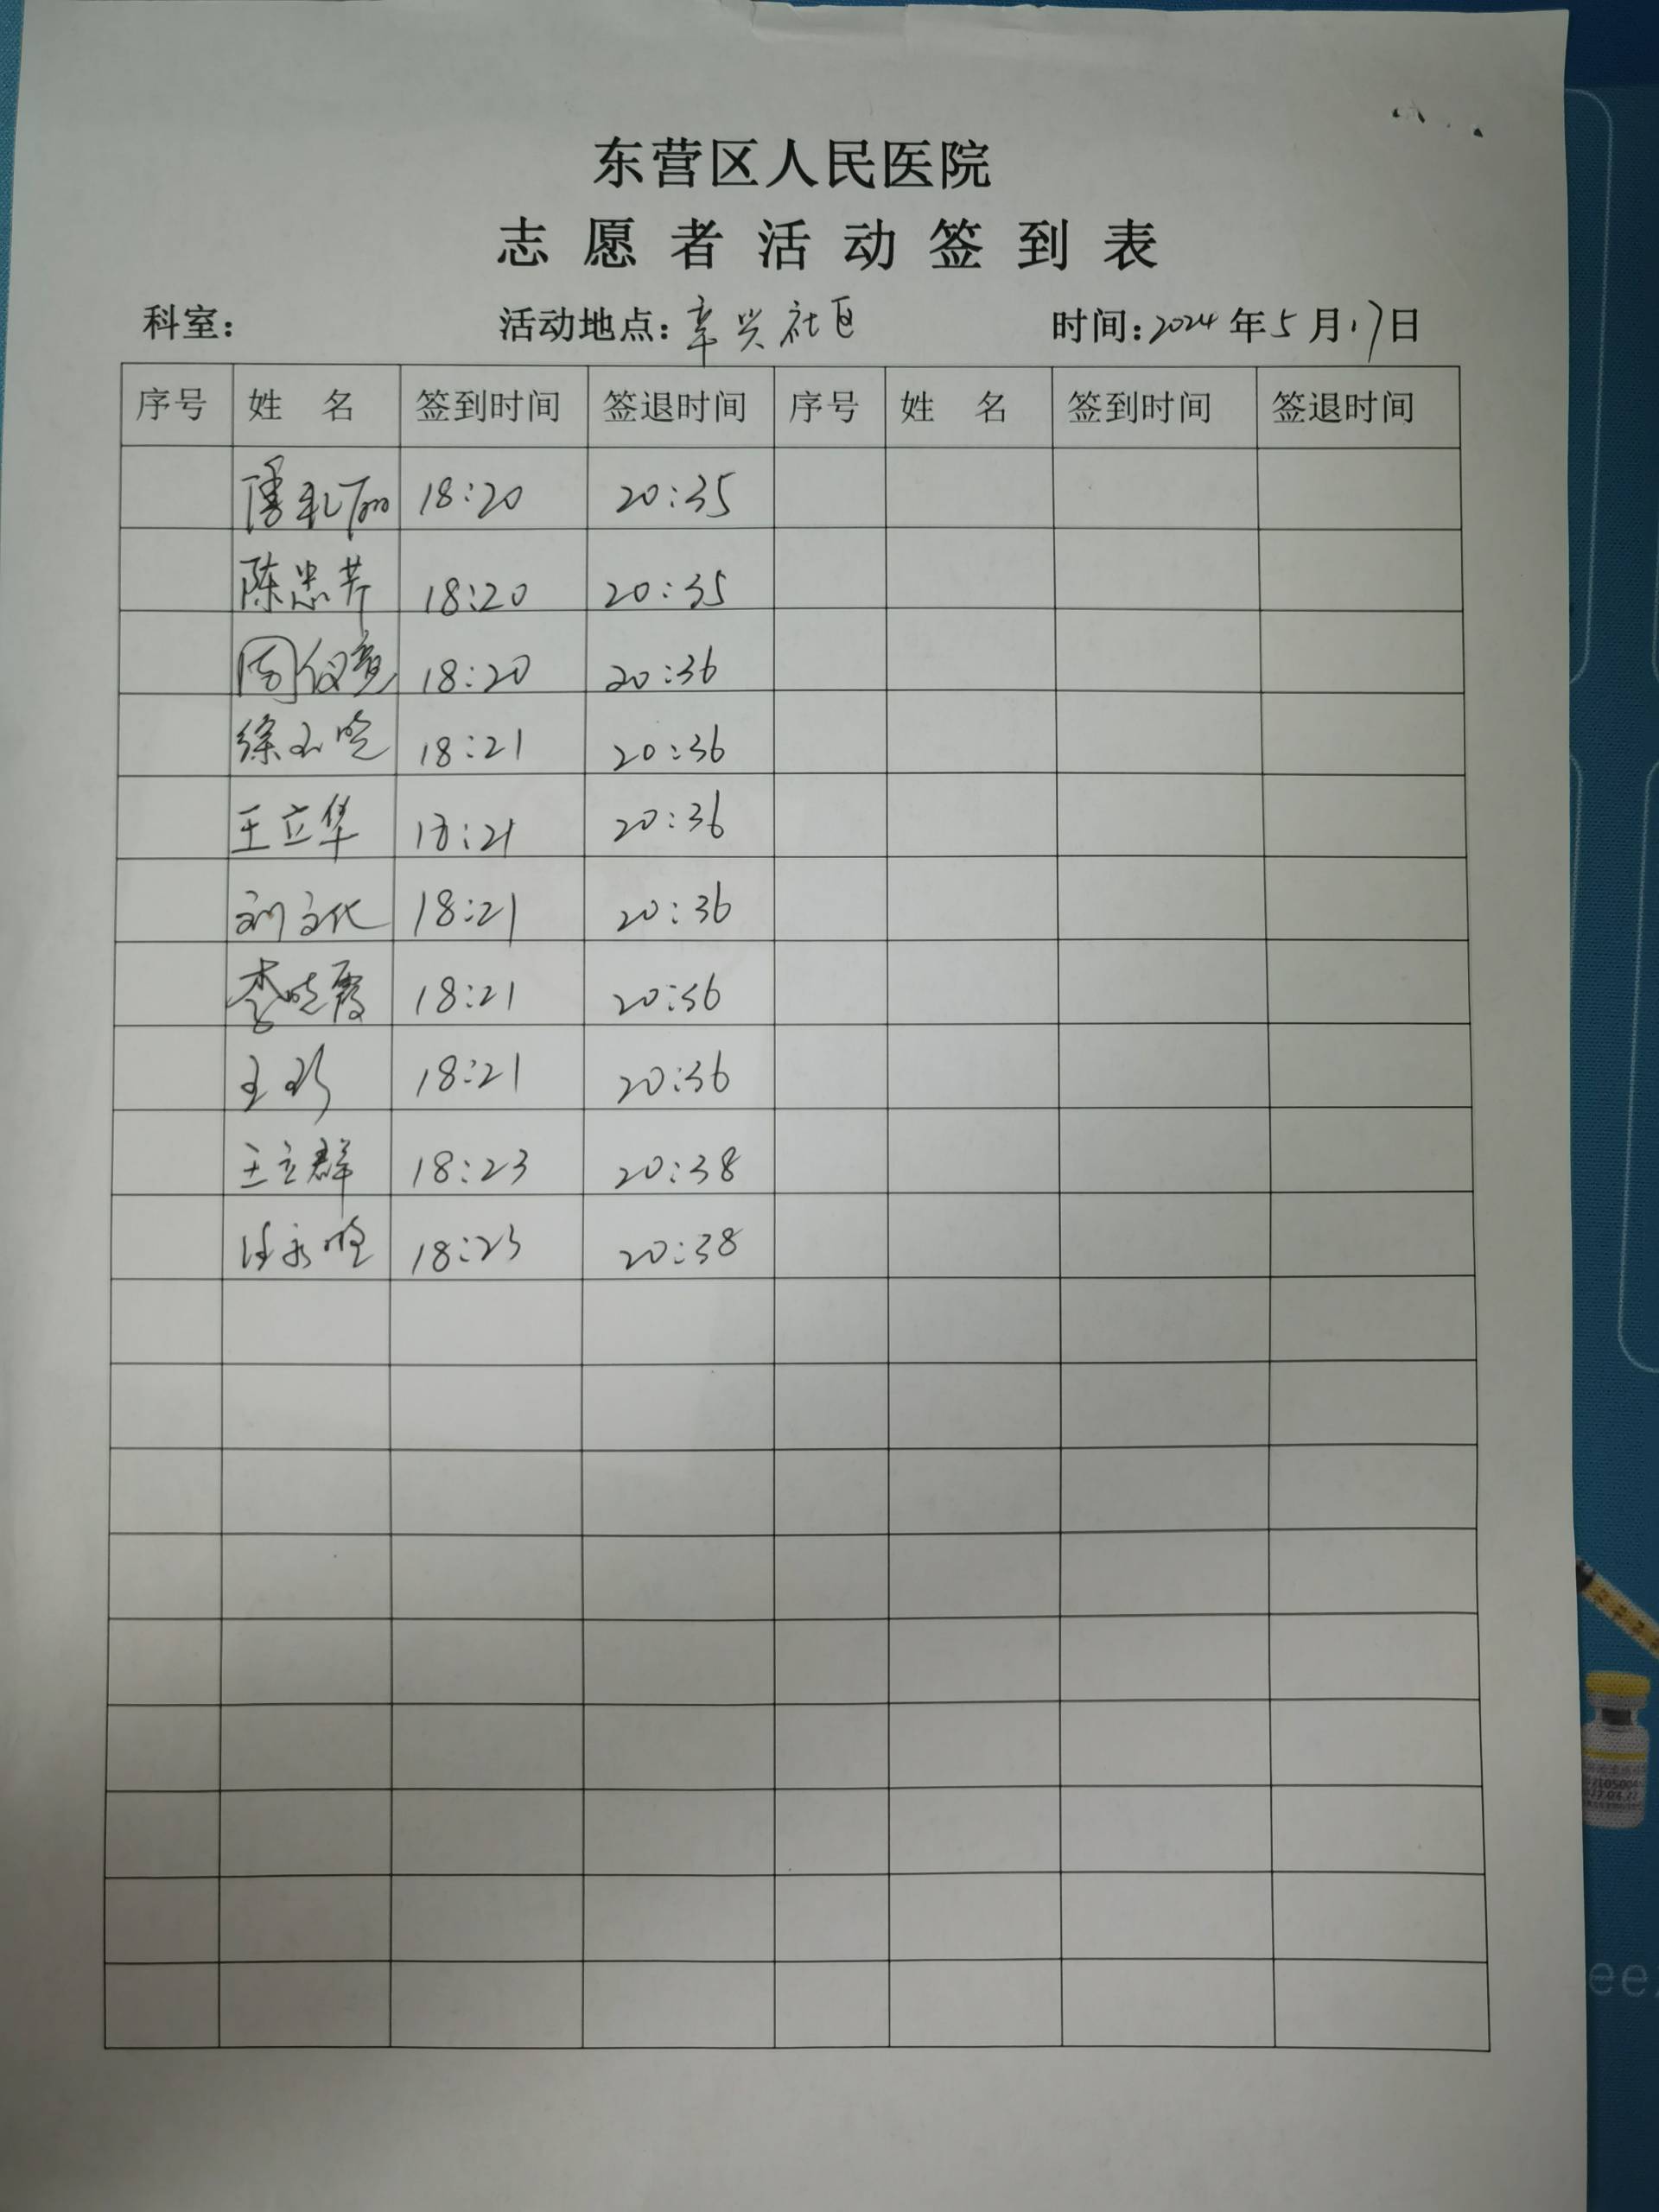 东营区人民医院
志愿者活动签到表
科室： 活动地点：辛兴社区 时间：2024年5月17日
序号 姓 名 签到时间 签退时间 序号 姓 名 签到时间 签退时间
潘礼丽 18:20 20:35
陈忠芹 18:20 20:35
18:20 20:36
徐玉晓 18:21 20:36
王立华 18:21 20:36
刘文化 18:21 20:36
李晓霞 18:21 20:36
王彩 18:21 20:36
王立群 18:23 20:38
18:23 20:38